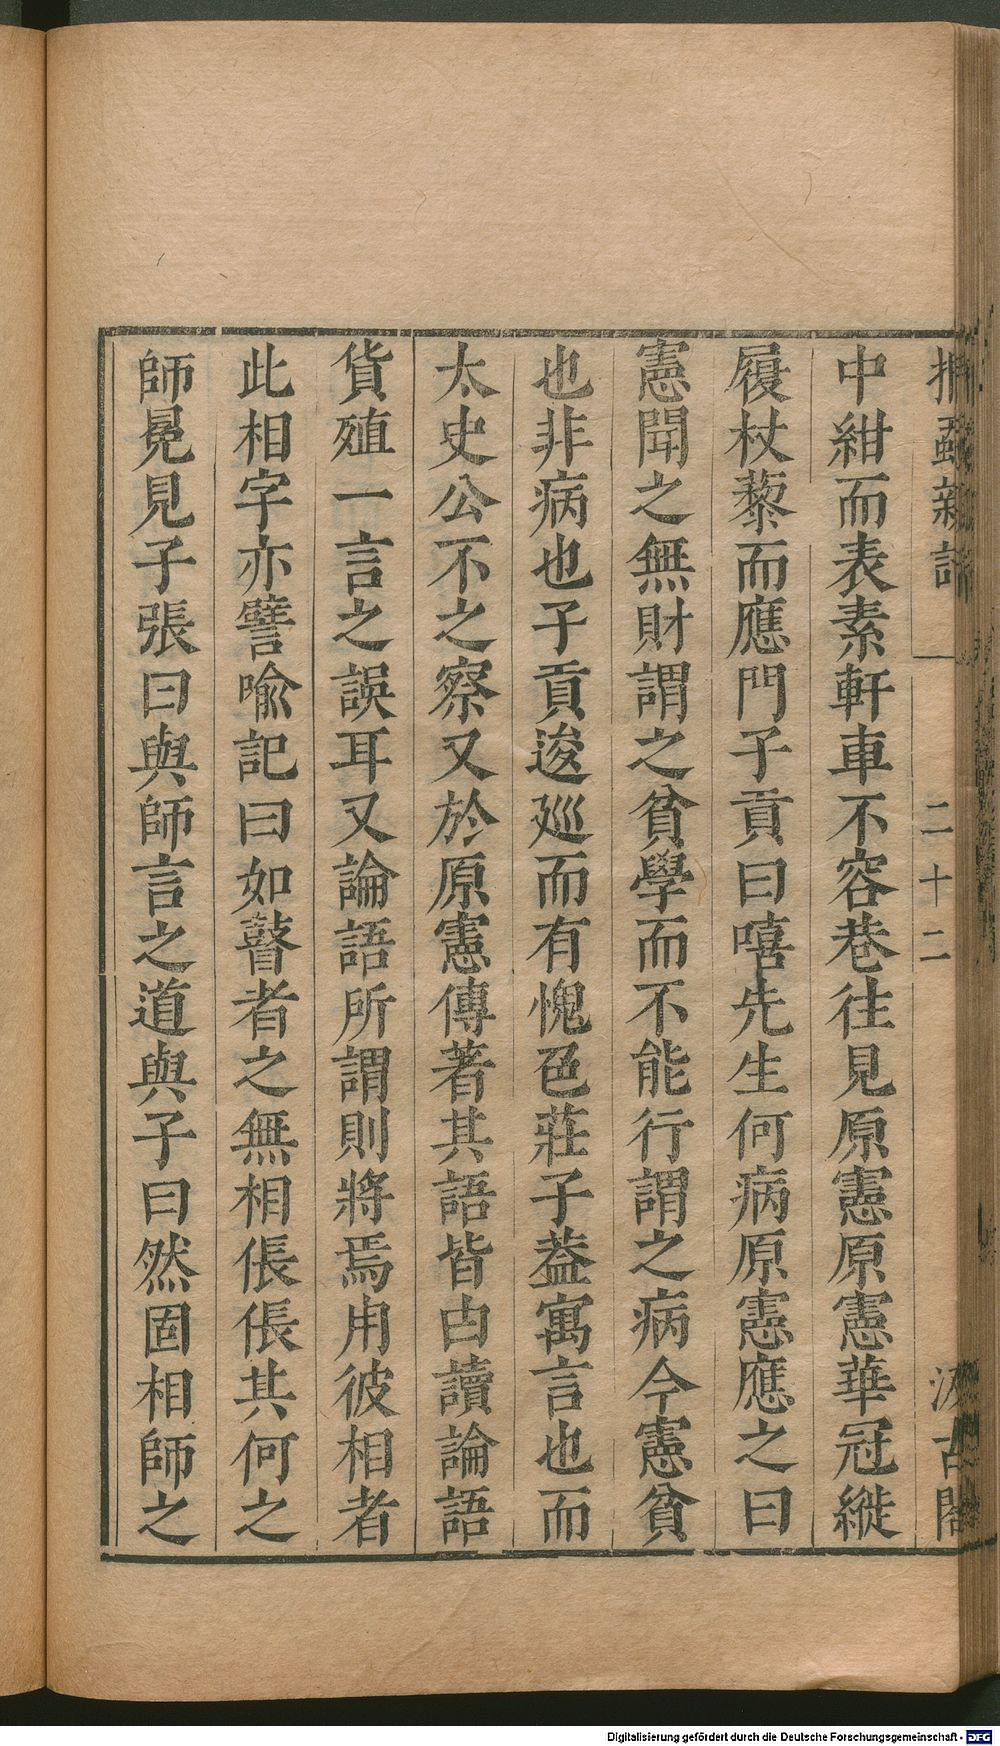 捫蝨新話 一 二十二 汲古閣
中紺而表素軒車不容巷往見原憲原憲華冠縰
履杖藜而應門子貢曰嘻先生何病原憲應之曰
憲聞之無財謂之貧學而不能行謂之病今憲貧
也非病也子貢逡廵而有愧色莊子葢寓言也而
太史公不之察又於原憲傳著其語皆由讀論語
貨殖一言之誤耳又論語所謂則將焉用彼相者
此相字亦譬喻記曰如瞽者之無相倀倀其何之
師冕見子張曰與師言之道與子曰然固相師之
Digitalisierung gefördert durch die Deutsche Forschungsgemeinschaft - DFG